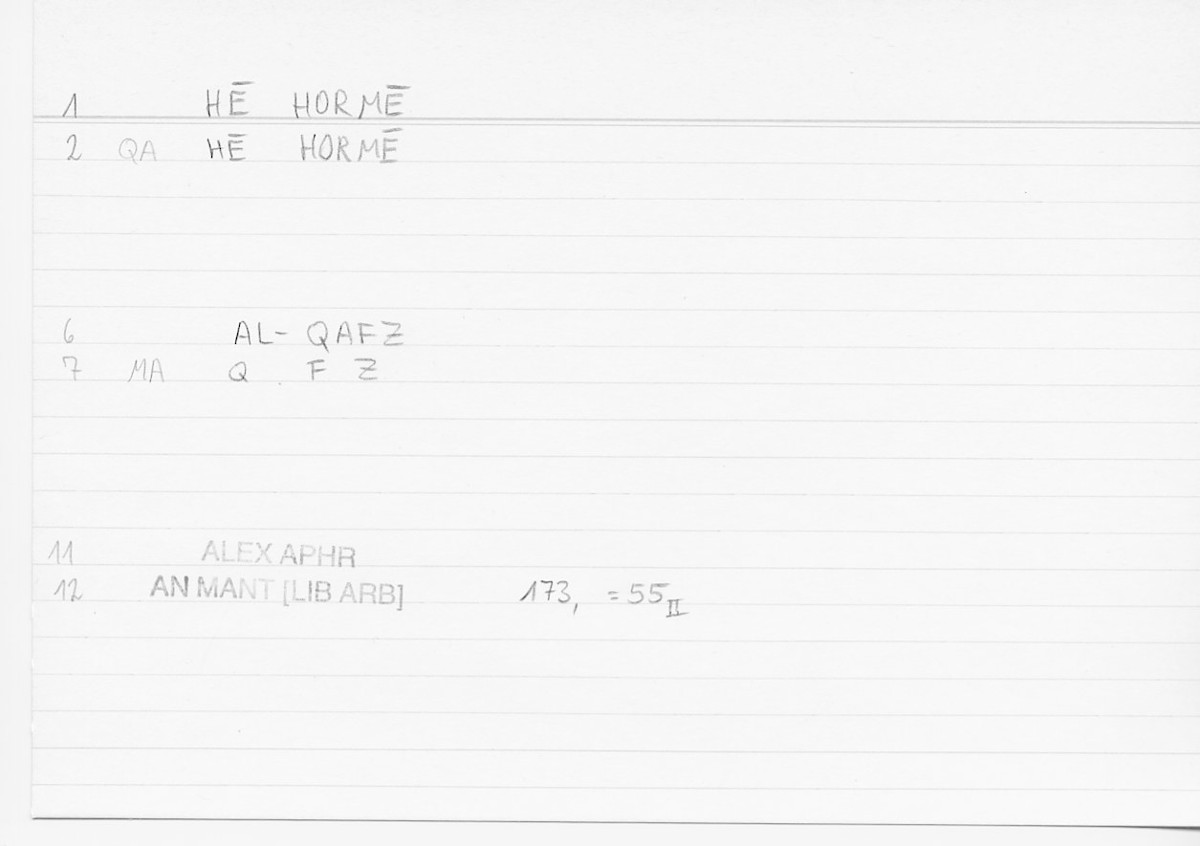 1 HĒ HORMĒ
2 QA HĒ HORMĒ
6 AL- QAFZ
7 MA Q . F Z
11 ALEX APHR
12 AN MANT [LIB ARB] 173, = 55 II